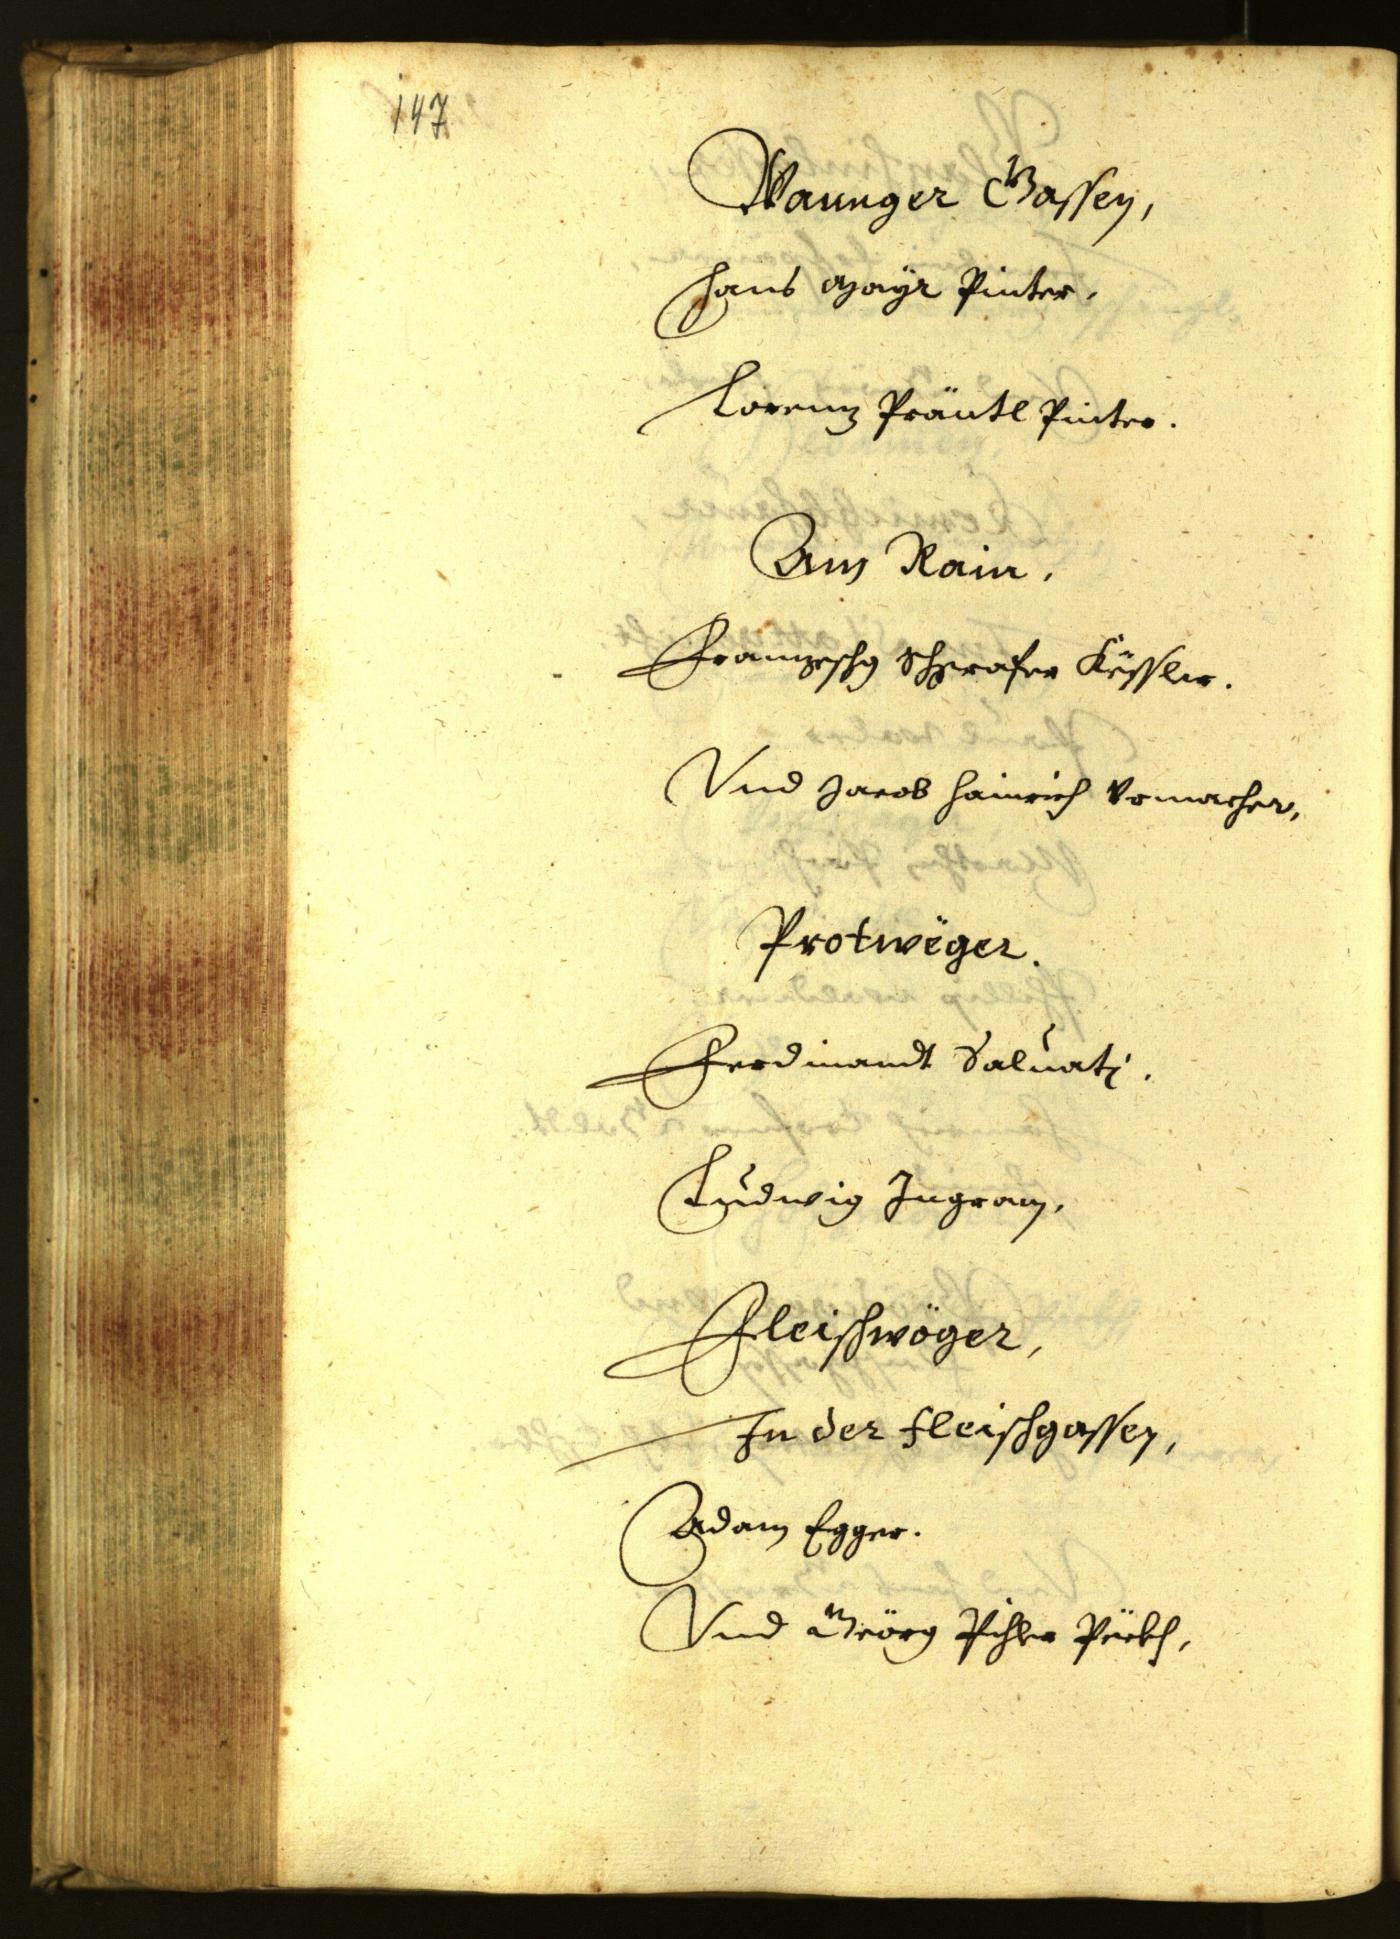 147
Wannger Gassen,
Hans Mayr Pinter.
Lorenz Präntl Pinter.
Am Rain.
Franzesch Schgrafer Këssler.
Vnd Jacob Hainrich Vrmacher,
Protwëger.
Ferdinandt Saluati.
Ludwig Ingram,
Fleischwöger,
In der Fleischgassen,
Adam Egger.
Vnd Geörg Pichler Pëckh,